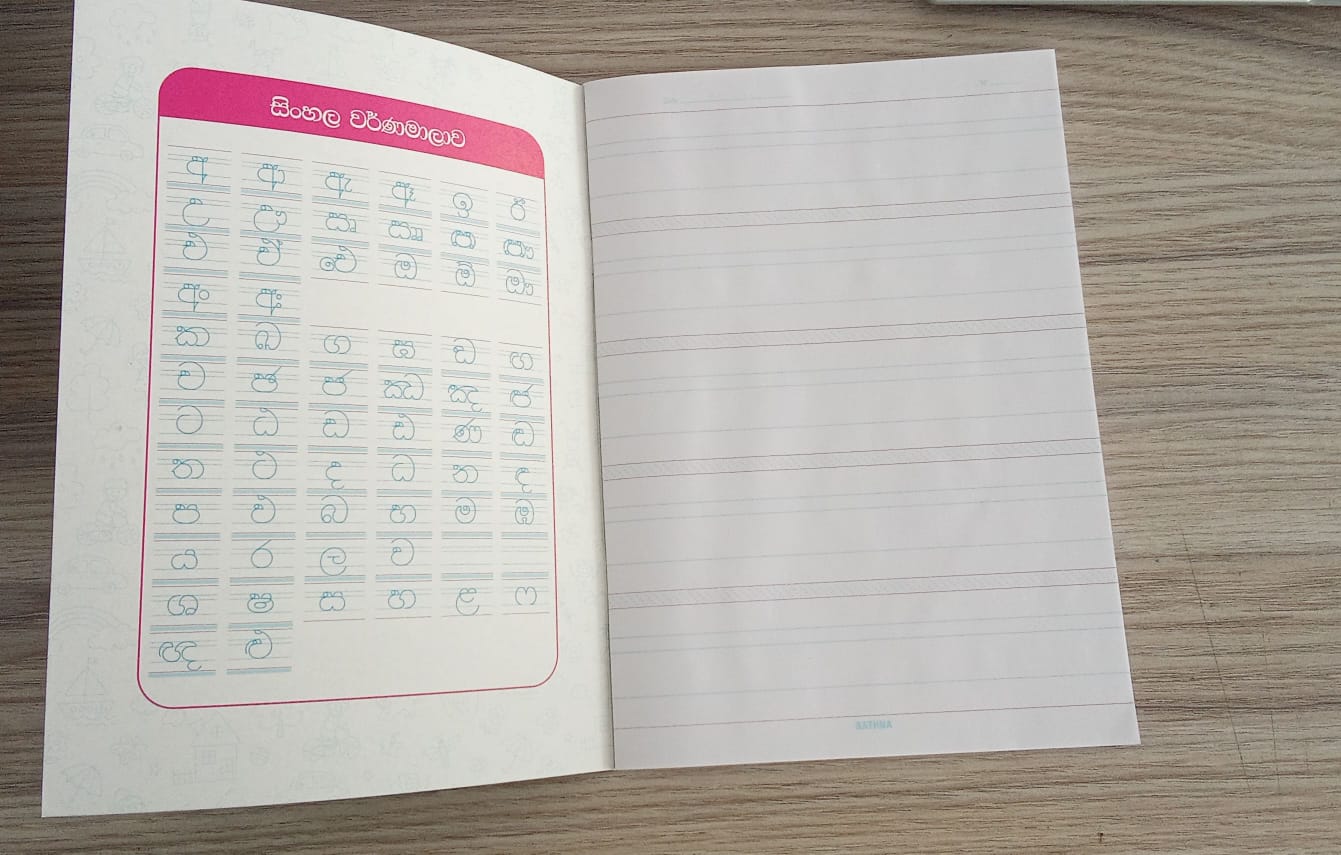 සිංහල වර්ණමාලාව
අ ආ ඇ ඈ ඉ ඊ
උ ඌ ඍ ඎ ඏ ඐ
එ ඒ ඓ ඔ ඕ ඖ
අං අඃ
ක ඛ ග ඝ ඞ ඟ
ච ඡ ජ ඣ ඤ ඦ
ට ඨ ඩ ඪ ණ ඬ
ත ථ ද ධ න ඳ
ප ඵ බ භ ම ඹ
ය ර ල ව
ශ ෂ ස හ ළ ෆ
RATHNA